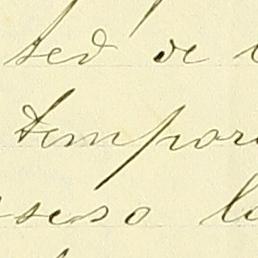 ted de
tempor
seso la